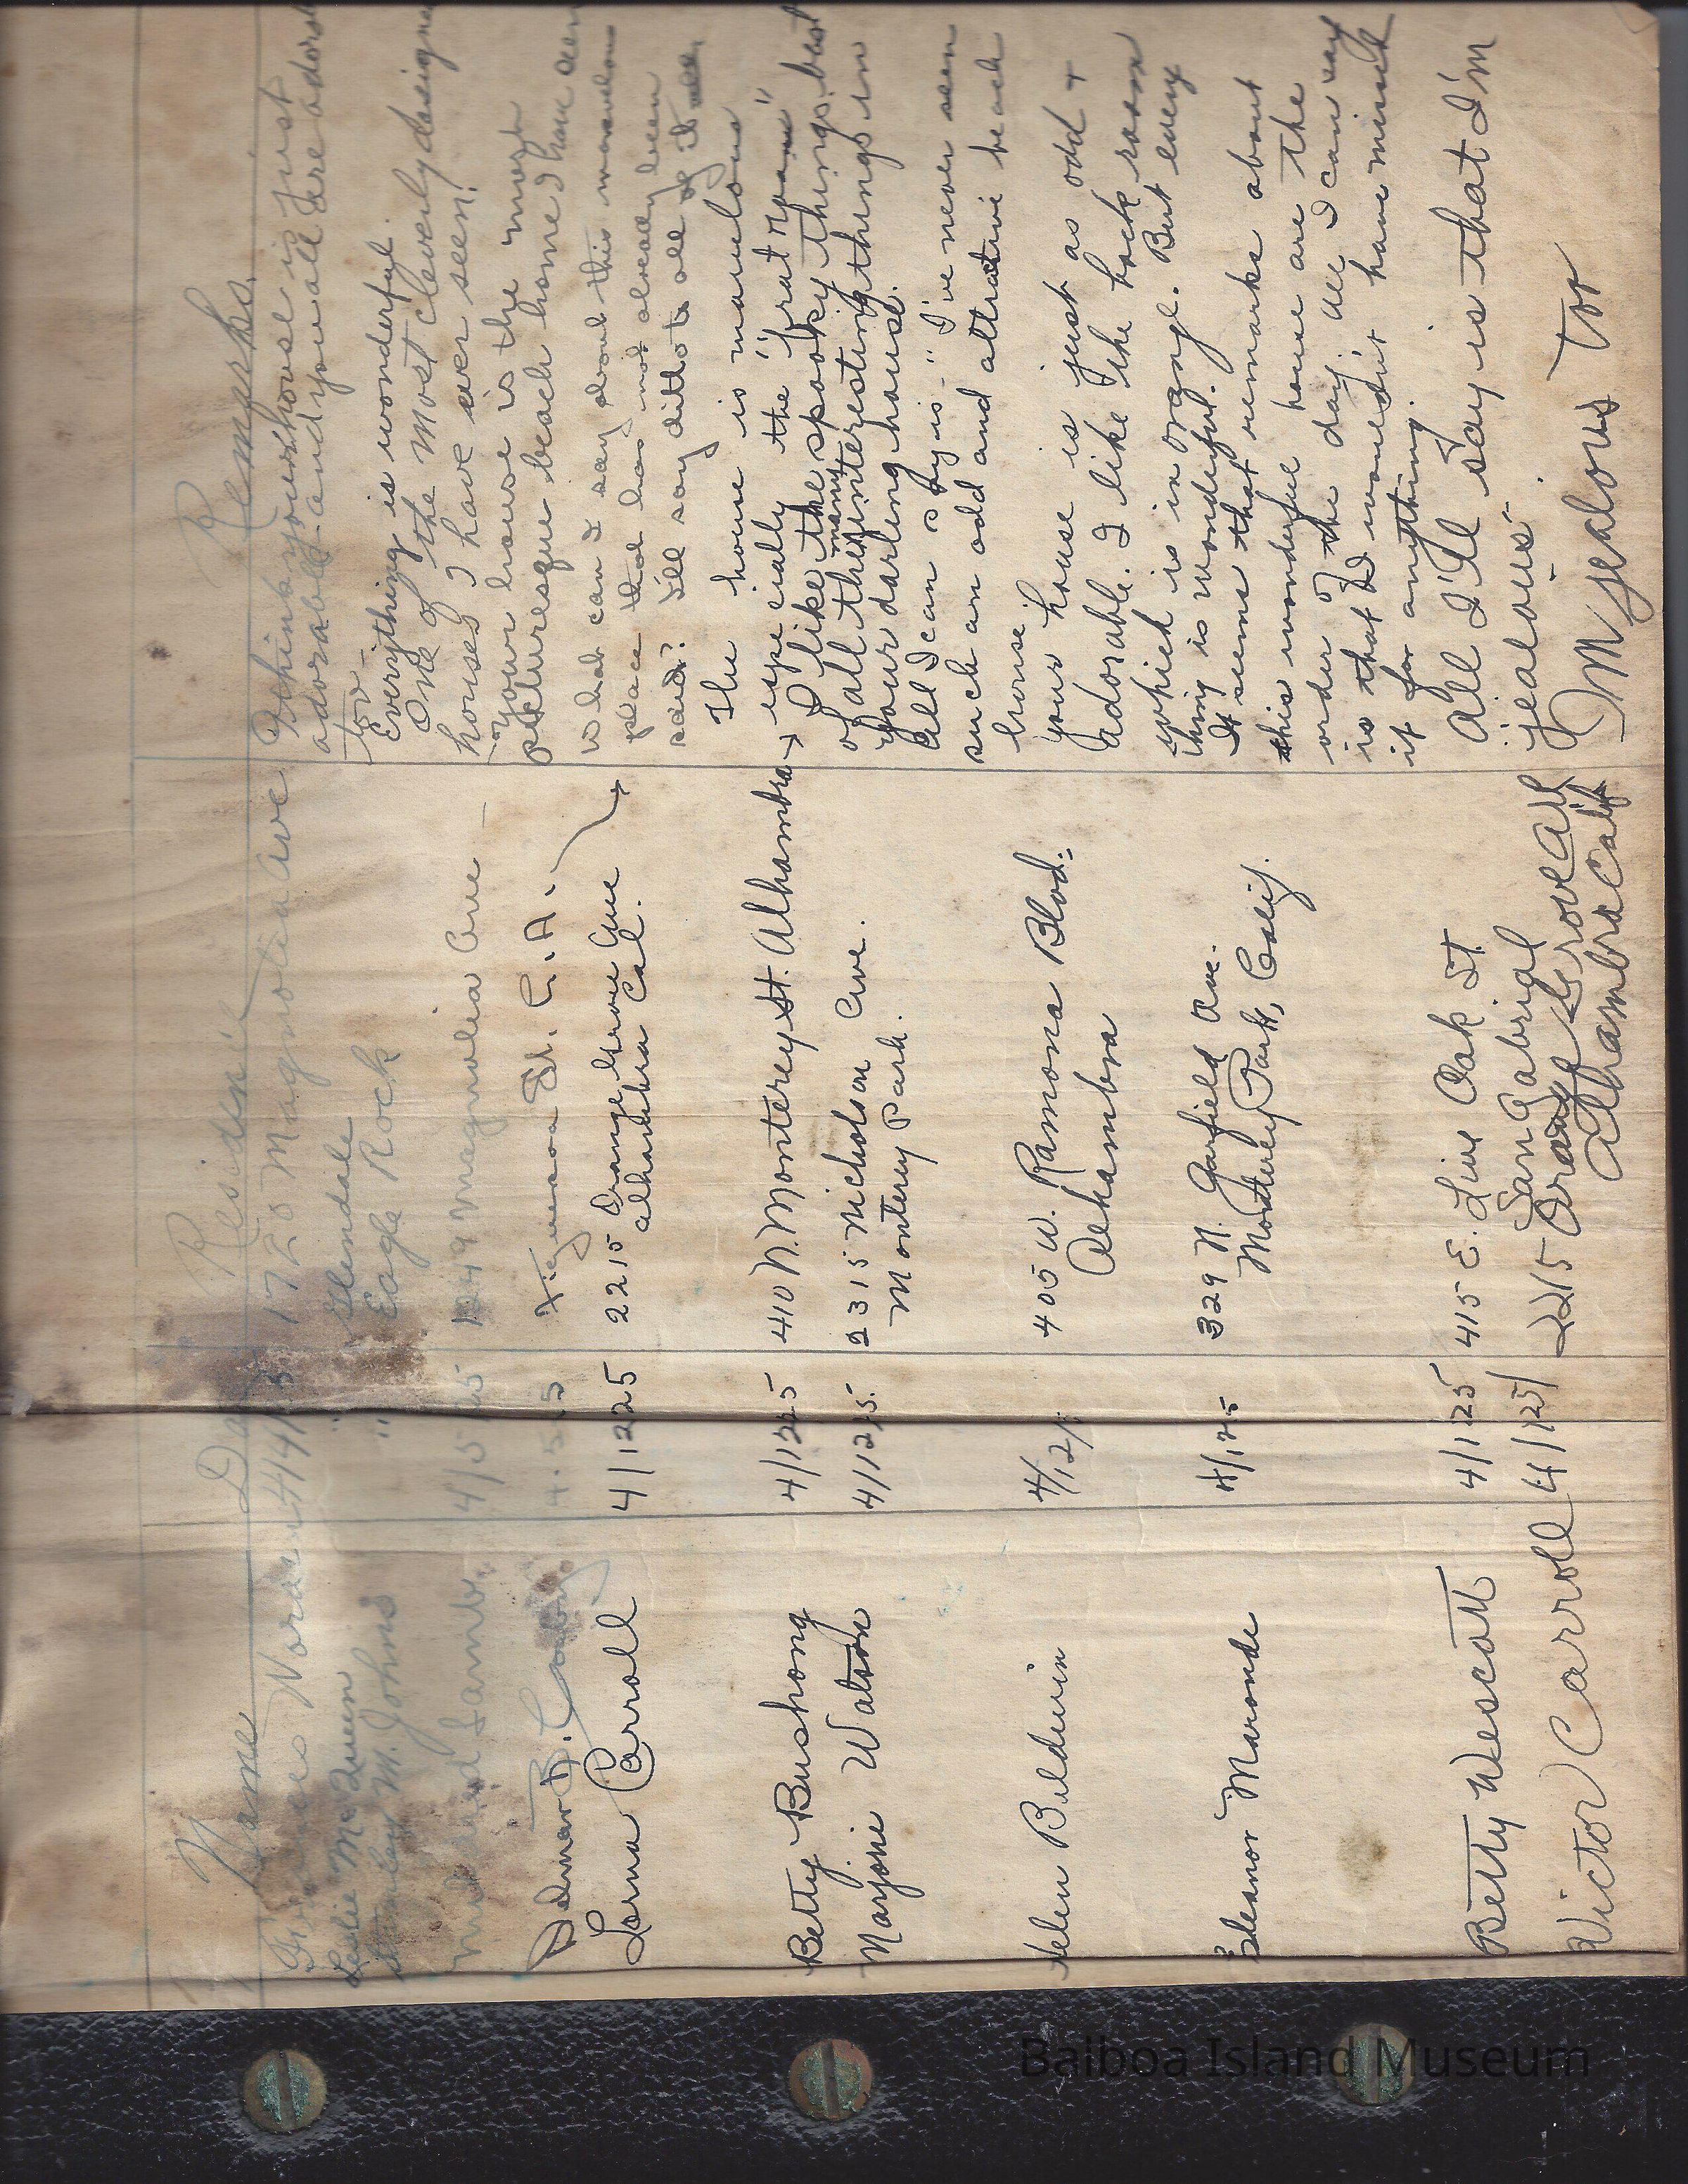 Name Day Residence Remarks.
Frances 4/4/25 1720 Magnolia Ave I think your house is just
Leslie McQueen " Glendale adorable and you all are adorable
Stanley M. Johns " Eagle Rock too-
Everything is wonderful.
One of the most cleverly designed
houses I have ever seen!
Mildred Lamb 4/5 25 1249 Magnolia Ave your house is the most
picturesque beach home I have seen
Delmar 4.5.25 Figueroa St. L.A. What can I say about this marvelous
Lorna Carroll 4/12 25 2215 Orange Grove Ave place that has not already been
Alhambra Cal. said? I'll say ditto to all of it
The house is marvelous
Betty Bushong 4/12 25 410 N. Monterey St. Alhambra especially the "frat room"
Marjorie Watson 4/12/25. 2315 Nicholson Ave. I like the spooky things best
Monterey Park. of all the many interesting things in
your darling house.
All I can say is- "I've never seen
such an odd and attractive beach
house.
Helen Baldwin 4/12/ 405 W. Ramona Blvd. your house is just as odd +
Alhambra adorable. I like the back room
which is in orange. But every
thing is wonderful.
Eleanor Maronde 4/12 5 329 N. Garfield Ave. It seems that remarks about
Monterey Park, Calif. this wonderful house are the
order of the day. All I can say
is that I wouldn't have missed
it for anything.
Betty Wescott 4/12 5 415 E. Live Oak St. All I'll say is that I'm
San Gabriel jealous.
Victor Carroll 4/12 5/ 2215 Orange Grove Ave I'm jealous too
Alhambra Calif
Balboa Island Museum